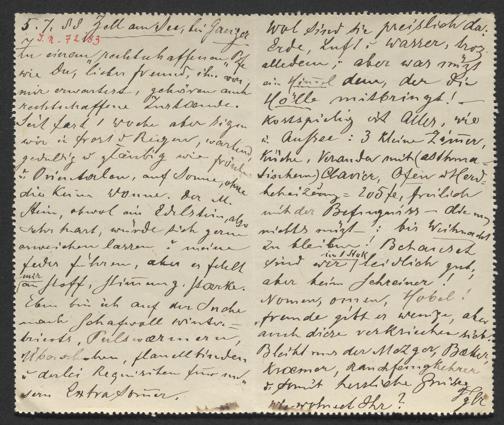 5. 7. 88 Zell am See, bei Gaeiger
I.N. 72103
Zu einem „rechtschaffenen"
wie Du, lieber Freund, ihn von
mir erwartest, gehören auch
rechtschaffene Zustände.
Seit fast 1 Woche aber liegen
wir in Frost u Regen, warten
geduldig u gläubig wie Frösche
u Orientalen, auf Sonne, ohne
die keine Wonne. Der M.
Stein, obwol ein Edelstein, also
sehr hart, würde sich gerne
erweichen lassen, u meine
Feder führen, aber es fehlt
mir
an Stoff, Stimmung, Stärke.
Eben bin ich auf der Suche
nach Schafwoll Winter-
tricots, Pulswärmern,
flanellbinden
u derlei Requisiten für un-
sern Extrasomer.
Wol sind sie preislich da:
Erde, Luft u Wasser, troz
alledem; aber was nüzt
ein Himel dem, der die
Hölle mitbringt! –
Kostspielig ist Alles, wie
in Aussee: 3 kleine Zimer,
Küche, Veranda mit (asthma-
tischem) Clavier, Ofen u Herd-
beheizung = 205 fl, freilich
mit der Befugniss – die mir
nichts nüzt; bis Weihnacht
zu bleiben! Behauset
im 1 Stok
sind wir leidlich gut,
aber beim Schreiner!
Nomen, omen, Hobel!
Freunde gibt es wenige, aber
auch diese verkriechen sich.
Bleibt nur der Metzger, Bäker
Kraemer, Rauchfangkehrer
u somit herzliche Grüsse
wie wohnet Ihr?